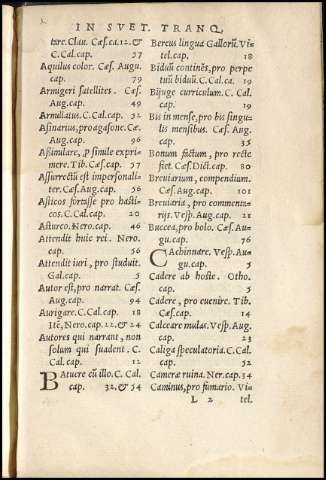 IN SVET. TRANQ.
tare. Clau. Cæs. ca. 12. &
C. Cal. cap. 57
Aquilus color. Cæs. Augu.
cap. 79
Armigeri satellites. Cæs.
Aug. cap. 49
Armullatus. C. Cal. cap. 52
Asinarius, pro agasone. Cæ.
Aug. cap. 96
Assimilare, p simile expri-
mere. Tib. Cæs. cap. 57
Assurrectū est impersonali-
ter. Cæs. Aug. cap. 56
Asticos fortasse pro hasti-
cos. C. Cal. cap. 20
Asturco. Nero. cap. 46
Attendit huic rei. Nero.
cap. 56
Attendit iuri, pro studuit.
Gal. cap. 5
Autor est, pro narrat. Cæs.
Aug. cap. 94
Aurigare. C. Cal. cap. 18
Itē, Nero. cap. 22. & 24
Autores qui narrant, non
solum qui suadent. C.
Cal. cap. 12
BAtuere cū illo. C. Cal.
cap. 32. & 54
Bercus lingua Gallorū. Vi-
tel. cap. 18
Biduū continēs, pro perpe
tuū biduū. C. Cal. ca. 19
Bijuge curriculum. C. Cal.
cap. 19
Bis in mense, pro bis singu-
lis mensibus. Cæs. Aug.
cap. 35
Bonum factum, pro recte
fiet. Cæs. Dict. cap. 80
Breuiarium, compendium.
Cæs. Aug. cap. 101
Breuiaria, pro commenta-
rijs. Vesp. Aug. cap. 21
Buccea, pro bolo. Cæs. Au-
gu. cap. 76
CAchinnare. Vesp. Au-
gu. cap. 5
Cadere ab hoste. Otho.
cap. 5
Cadere, pro euenire. Tib.
Cæs. cap. 14
Calceare mulas. Vesp. Aug.
cap. 23
Caliga speculatoria. C. Cal.
cap. 52
Cameræ ruina. Ner. cap. 34
Caminus, pro fumario. Vi-
L 2 tel.